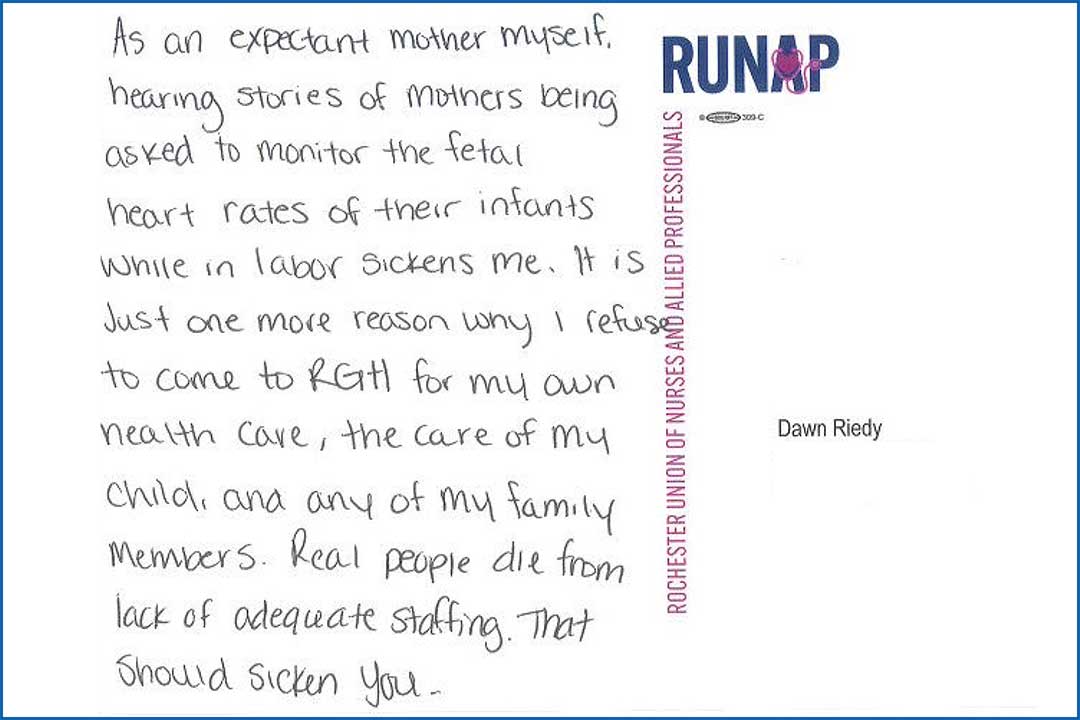 As an expectant mother myself,
hearing stories of mothers being
asked to monitor the fetal
heart rates of their infants
while in labor sickens me. It is
Just one more reason why I refuse
to come to RGH for my own
health care, the care of my
child, and any of my family
members. Real people die from
lack of adequate staffing. That
should sicken you.
RUNAP
309-C
ROCHESTER UNION OF NURSES AND ALLIED PROFESSIONALS
Dawn Riedy